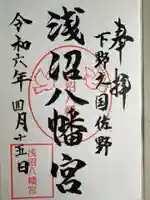 奉拝
下野之国佐野
浅沼八幡宮
令和六年四月十五日
浅沼八幡宮